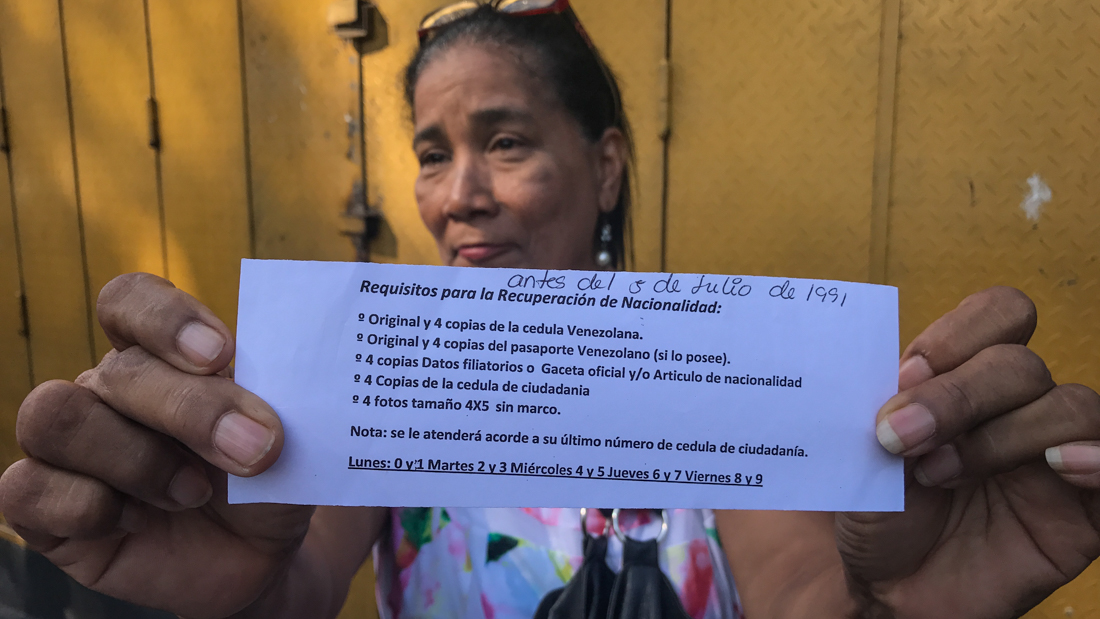 antes del 5 de Julio de 1991
Requisitos para la Recuperación de Nacionalidad:
º Original y 4 copias de la cedula Venezolana.
º Original y 4 copias del pasaporte Venezolano (si lo posee).
º 4 copias Datos filiatorios o Gaceta oficial y/o Articulo de nacionalidad
º 4 Copias de la cedula de ciudadania
º 4 fotos tamaño 4X5 sin marco.
Nota: se le atenderá acorde a su último número de cedula de ciudadanía.
Lunes: 0 y 1 Martes 2 y 3 Miércoles 4 y 5 Jueves 6 y 7 Viernes 8 y 9